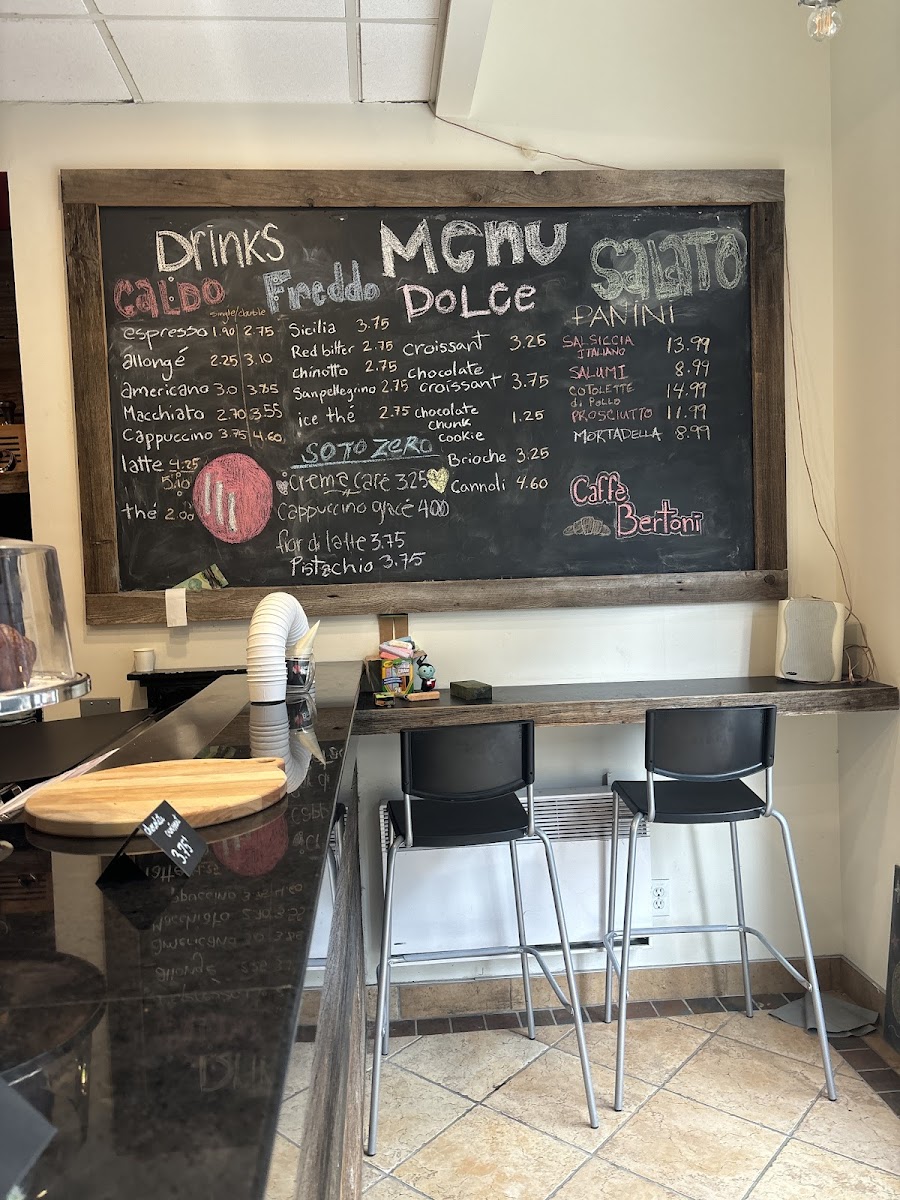 Menu
Drinks
CALDO
single/double
espresso 1.90 2.75
allongé 2.25 3.10
americano 3.0 3.85
Macchiato 2.70 3.55
Cappuccino 3.75 4.60
latte 4.25
5.10
thé 2.00
Freddo
Sicilia 3.75
Red bitter 2.75
chinotto 2.75
Sanpellegrino 2.75
ice thé 2.75
SOTO ZERO
crema café 325
Cappuccino glacé 400
fior di latte 3.75
Pistachio 3.75
DOLCE
croissant 3.25
chocolate
croissant 3.75
chocolate
chunk 1.25
cookie
Brioche 3.25
Cannoli 4.60
SALATO
PANINI
SALSICCIA
ITALIANO 13.99
SALUMI 8.99
COTOLETTE
di Pollo 14.99
PROSCIUTTO 11.99
MORTADELLA 8.99
Caffè
Bertoni
3.75